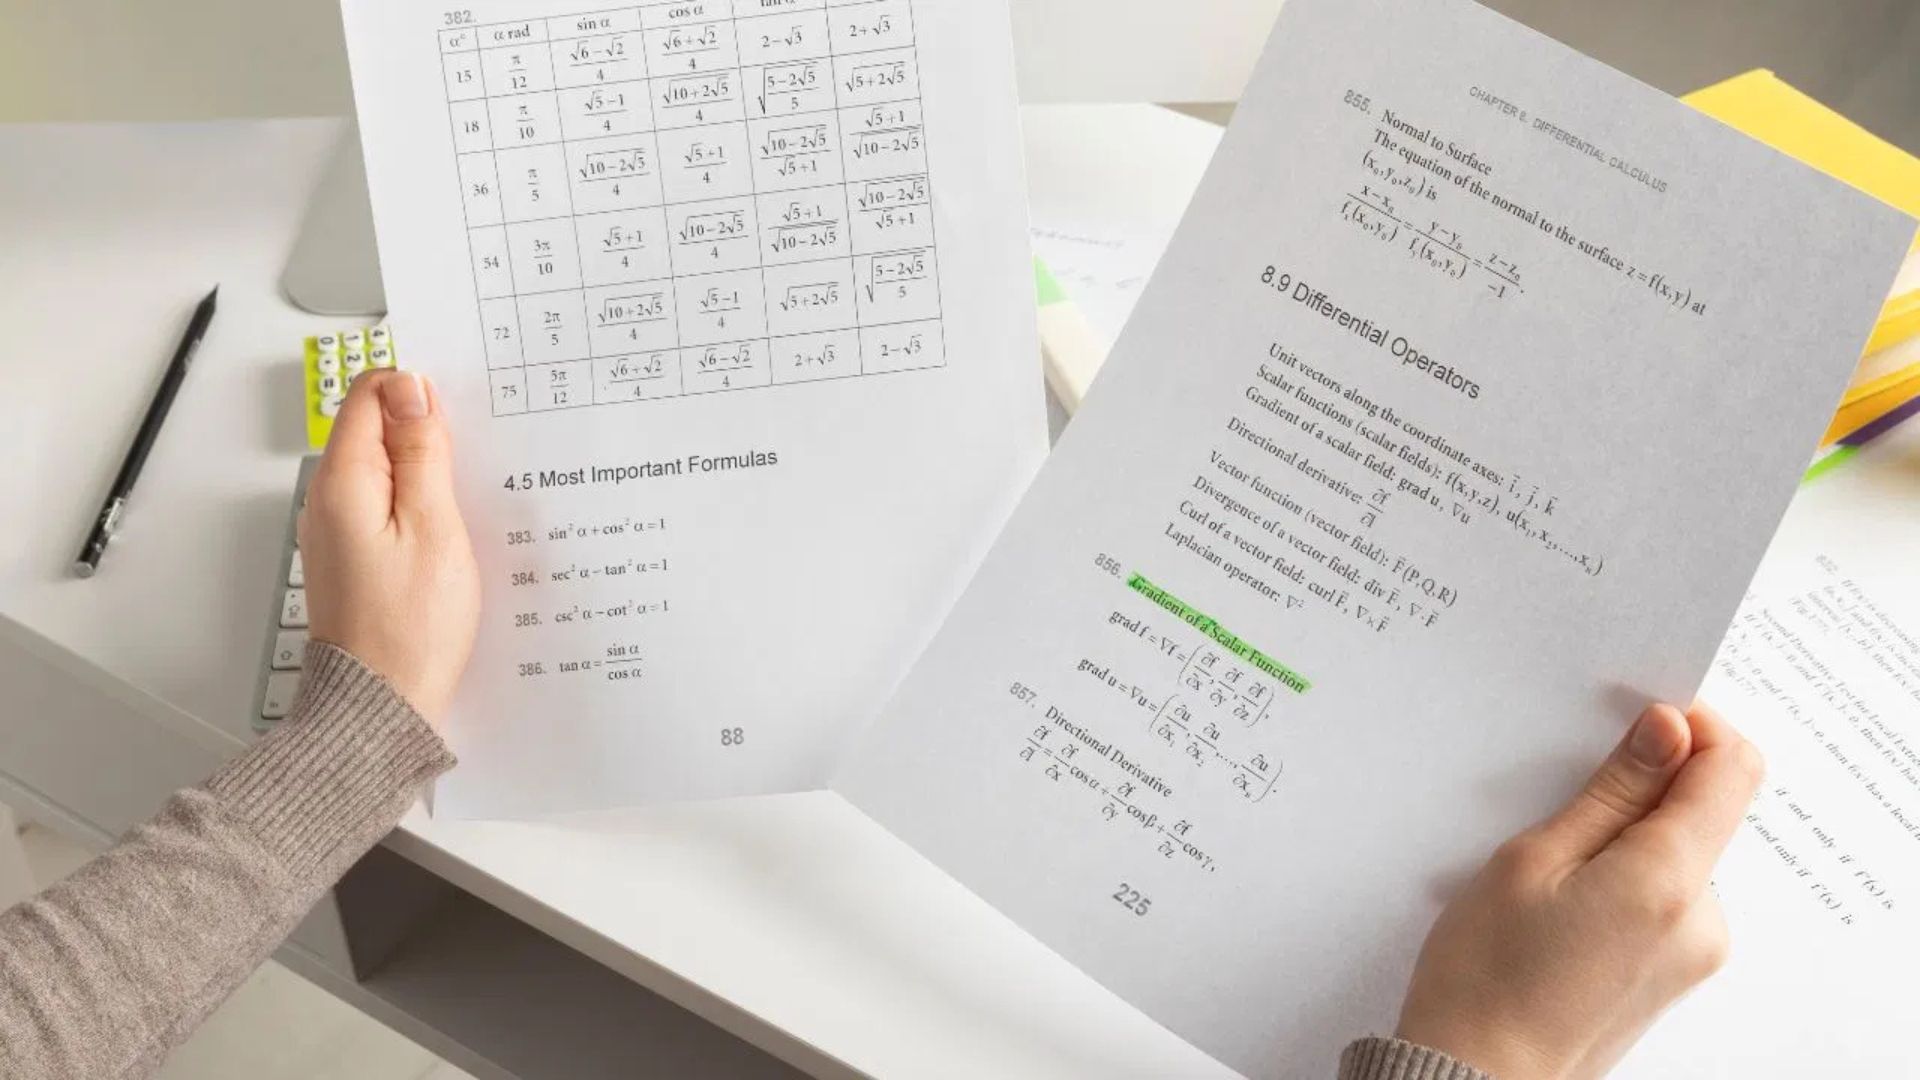 382.
α° α rad sin α cos α
15 π/12 (√6−√2)/4 (√6+√2)/4 2−√3 2+√3
18 π/10 (√5−1)/4 √(10+2√5)/4 √((5−2√5)/5) √(5+2√5)
36 π/5 √(10−2√5)/4 (√5+1)/4 √(10−2√5)/(√5+1) (√5+1)/√(10−2√5)
54 3π/10 (√5+1)/4 √(10−2√5)/4 (√5+1)/√(10−2√5) √(10−2√5)/(√5+1)
72 2π/5 √(10+2√5)/4 (√5−1)/4 √(5+2√5) √((5−2√5)/5)
75 5π/12 (√6+√2)/4 (√6−√2)/4 2+√3 2−√3
4.5 Most Important Formulas
383. sin² α + cos² α = 1
384. sec² α − tan² α = 1
385. csc² α − cot² α = 1
386. tan α = sin α / cos α
88
CHAPTER 8. DIFFERENTIAL CALCULUS
855. Normal to Surface
The equation of the normal to the surface z = f(x,y) at
(x₀,y₀,z₀) is
(x−x₀)/fₓ(x₀,y₀) = (y−y₀)/f_y(x₀,y₀) = (z−z₀)/−1.
8.9 Differential Operators
Unit vectors along the coordinate axes: i⃗, j⃗, k⃗
Scalar functions (scalar fields): f(x,y,z), u(x₁,x₂,…,xₙ)
Gradient of a scalar field: grad u, ∇u
Directional derivative: ∂f/∂l
Vector function (vector field): F⃗(P,Q,R)
Divergence of a vector field: div F⃗, ∇·F⃗
Curl of a vector field: curl F⃗, ∇×F⃗
Laplacian operator: ∇²
856. Gradient of a Scalar Function
grad f = ∇f = (∂f/∂x, ∂f/∂y, ∂f/∂z),
grad u = ∇u = (∂u/∂x₁, ∂u/∂x₂, …, ∂u/∂xₙ).
857. Directional Derivative
∂f/∂l = ∂f/∂x cos α + ∂f/∂y cos β + ∂f/∂z cos γ,
225
if and only if f′(x) is
if and only if f′(x) is